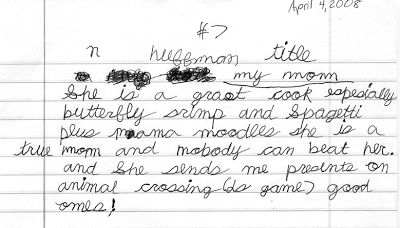 April 4, 2008
#7
n huffman title
my mom
She is a graet cook espesially
butterfly srimp and spagetti
plus mama moodles she is a
true mom and mobody can beat her.
and She sends me presents on
animal crossing (ds game) good
omes!